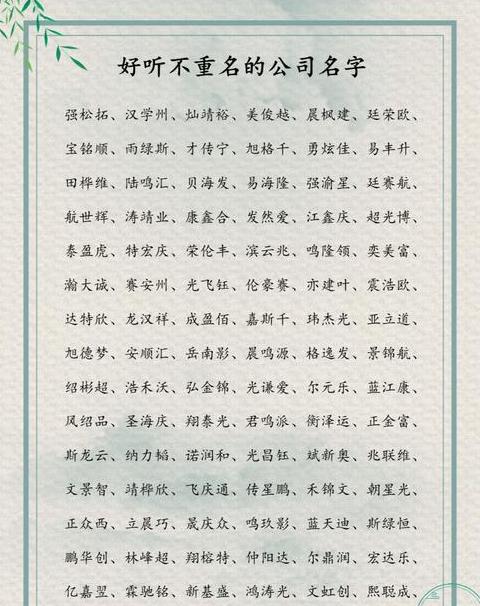 好听不重名的公司名字
强松拓、汉学州、灿靖裕、美俊越、晨枫建、廷荣欧、
宝铭顺、雨绿斯、才传宁、旭格千、勇炫佳、易丰升、
田桦维、陆鸣汇、贝海发、易海隆、强渝星、廷赛航、
航世辉、涛靖业、康鑫合、发然爱、江鑫庆、超光博、
泰盈虎、特宏庆、荣伦丰、滨云兆、鸣隆领、奕美富、
瀚大诚、赛安州、光飞钰、伦豪赛、亦建叶、震浩欧、
达特欣、龙汉祥、成盈佰、嘉斯千、玮杰光、亚立道、
旭德梦、安顺汇、岳南影、晨鸣源、格逸发、景锦航、
绍彬超、浩禾沃、弘金锦、光谦爱、尔元乐、蓝江康、
风绍品、圣海庆、翔泰光、君鸣派、衡泽运、正金富、
斯龙云、纳力韬、诺润和、光昌钰、斌新奥、兆联维、
文景智、靖桦欣、飞庆通、传星鹏、禾锦文、朝星光、
正众西、立晨巧、晟庆众、鸣玖影、蓝天迪、斯绿恒、
鹏华创、林峰超、翔榕特、仲阳达、尔鼎润、宏达乐、
亿嘉翌、霖驰铭、新基盛、鸿涛光、文虹创、熙聪成、